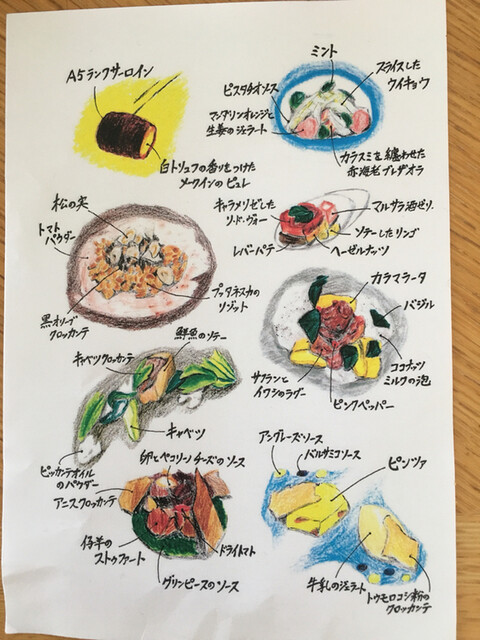 A5ランクサーロイン
白トリュフの香りをつけた
メークインのピュレ
ミント
スライスした
ウイキョウ
ピスタチオソース
マンダリンオレンジと
生姜のジェラート
カラスミを纏わせた
赤海老ブレザオラ
松の実
トマト
パウダー
黒オリーブ
クロッカンテ
プッタネスカの
リゾット
キャラメリゼした
リ・ド・ヴォー
マルサラ酒ゼリー
ソテーしたリンゴ
レバーパテ
ヘーゼルナッツ
カラマラータ
バジル
ココナッツ
ミルクの泡
サフランと
イワシのラグー
ピンクペッパー
鮮魚のソテー
キャベツクロッカンテ
キャベツ
ピッカンテオイル
のパウダー
卵とペコリーノチーズのソース
アニスクロッカンテ
仔羊の
ストゥファート
ドライトマト
グリンピースのソース
アングレーズソース
バルサミコソース
ピンツァ
牛乳のジェラート
トウモロコシ粉の
クロッカンテ